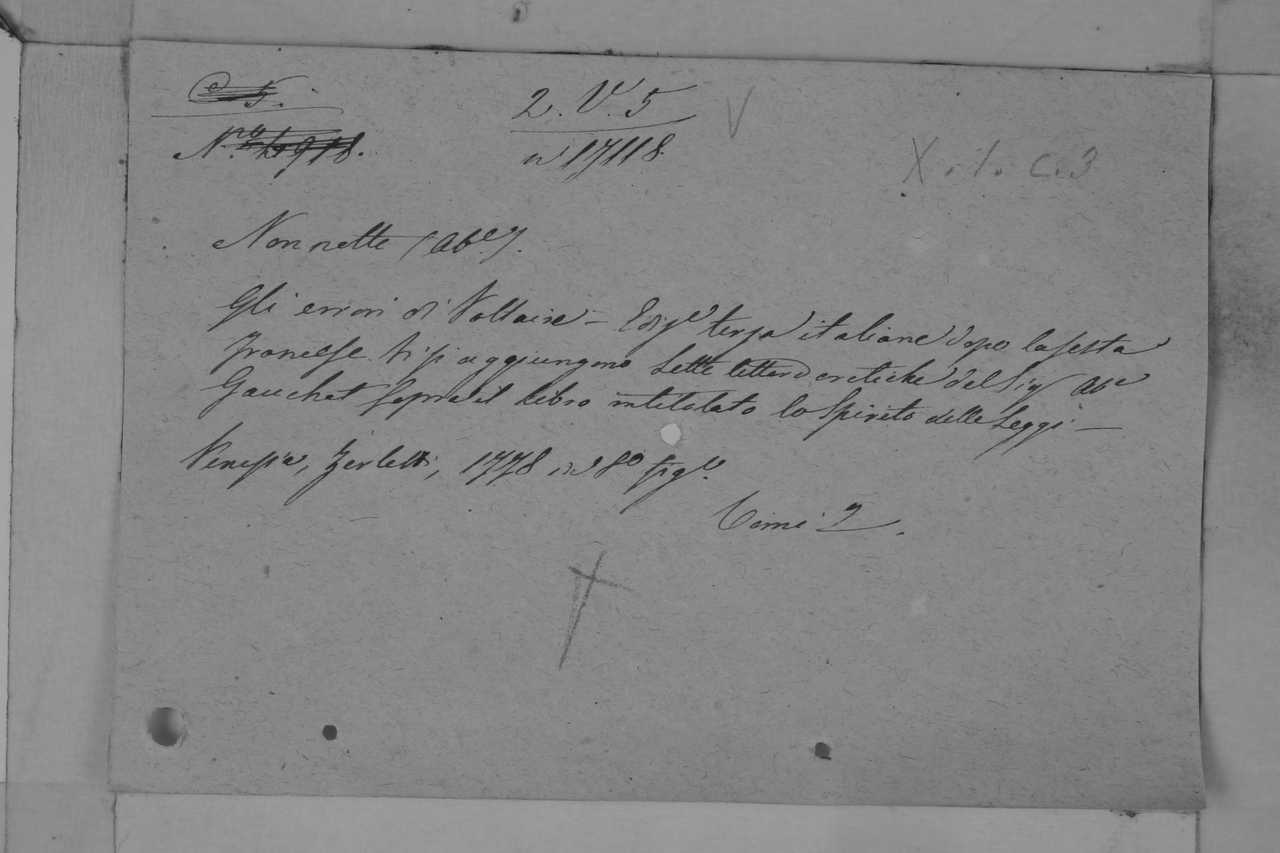 C. 5.
2. V. 5 V
N.ro 4918.
n 17118.
X. 1. C. 3
Nonnette (Ab.e).
Gli errori di Voltaire – Ediz.e terza italiana dopo la sesta
francese. Vi si aggiungono Sette lettere critiche del Sig.r Ab.e
Gauchat sopra il libro intitolato lo Spirito delle Leggi –
Venezia, Zerletti, 1778 in 8.o fig.o
Tomi 2.